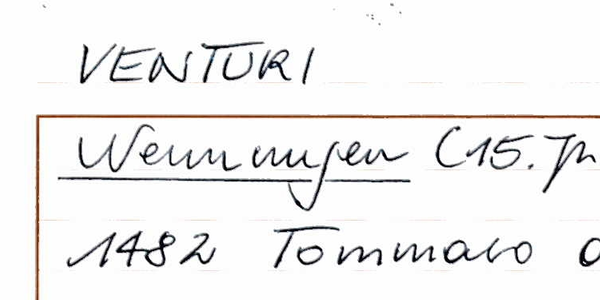 VENTURI
Nennungen (15. Jh
1482 Tommaso